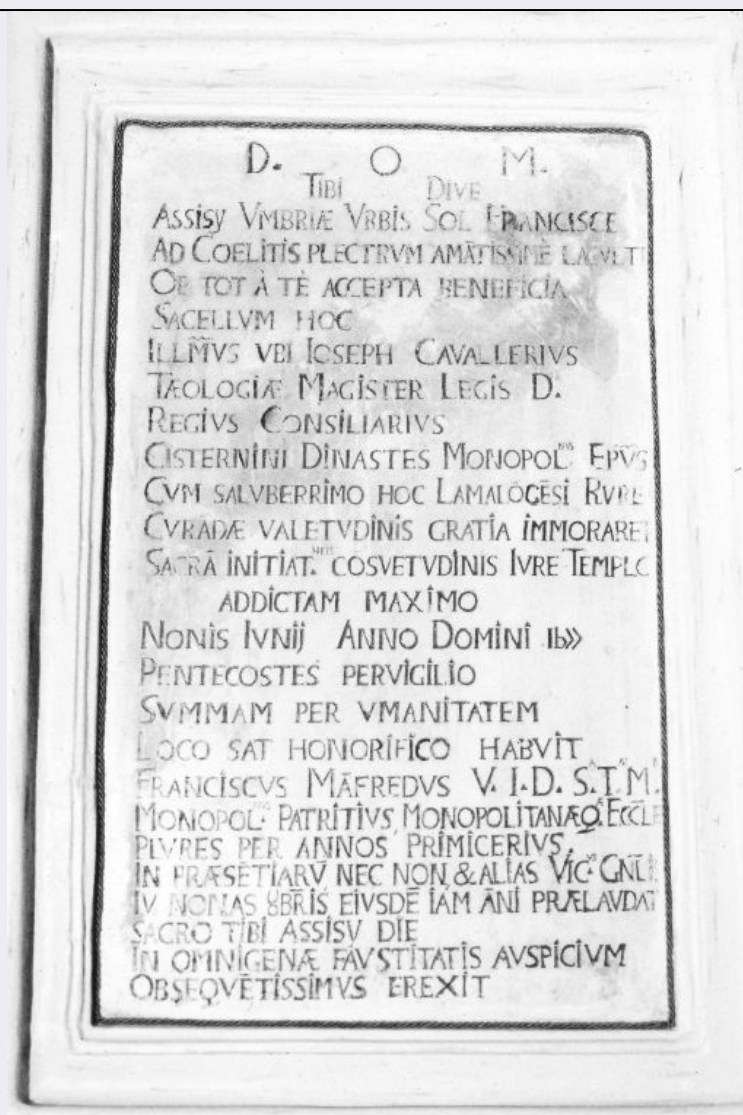 D. O M.
TIBI DIVE
ASSISY VMBRIÆ VRBIS SOL FRANCISCE
AD COELITIS PLECTRVM
OB TOT À TÈ ACCEPTA BENEFICIA
SACELLVM HOC
ILLM̃VS VBI IOSEPH CAVALLERIVS
TÆOLOGIÆ MAGISTER LEGIS D.
REGIVS CONSILIARIVS
CISTERNINI DINASTES MONOPOL. EPV̄S
CVM SALVBERRIMO HOC LAMALOGĒSI RVRE
CVRADÆ VALETVDINIS GRATIA
SACRĀ INITIAT. COSVETVDINIS IVRE TEMPLO
ADDICTAM MAXIMO
NONIS IVNIJ ANNO DOMINI
PENTECOSTES PERVIGILIO
SVMMAM PER VMANITATEM
LOCO SAT HONORIFICO HABVIT
FRANCISCVS MĀFREDVS V. I. D. S. T. M.
MONOPOL. PATRITIVS MONOPOLITANÆQ. ECCLE
PLVRES PER ANNOS PRIMICERIVS
IN PRÆSĒTIARV̄ NEC NON & ALIAS VIC. GNL̄
IV NONAS 8BRIS EIVSDĒ IAM ĀNI PRÆLAVDAT
SACRO TIBI ASSISV DIE
IN OMNIGENÆ FAVSTITATIS AVSPICIVM
OBSEQVĒTISSIMVS EREXIT